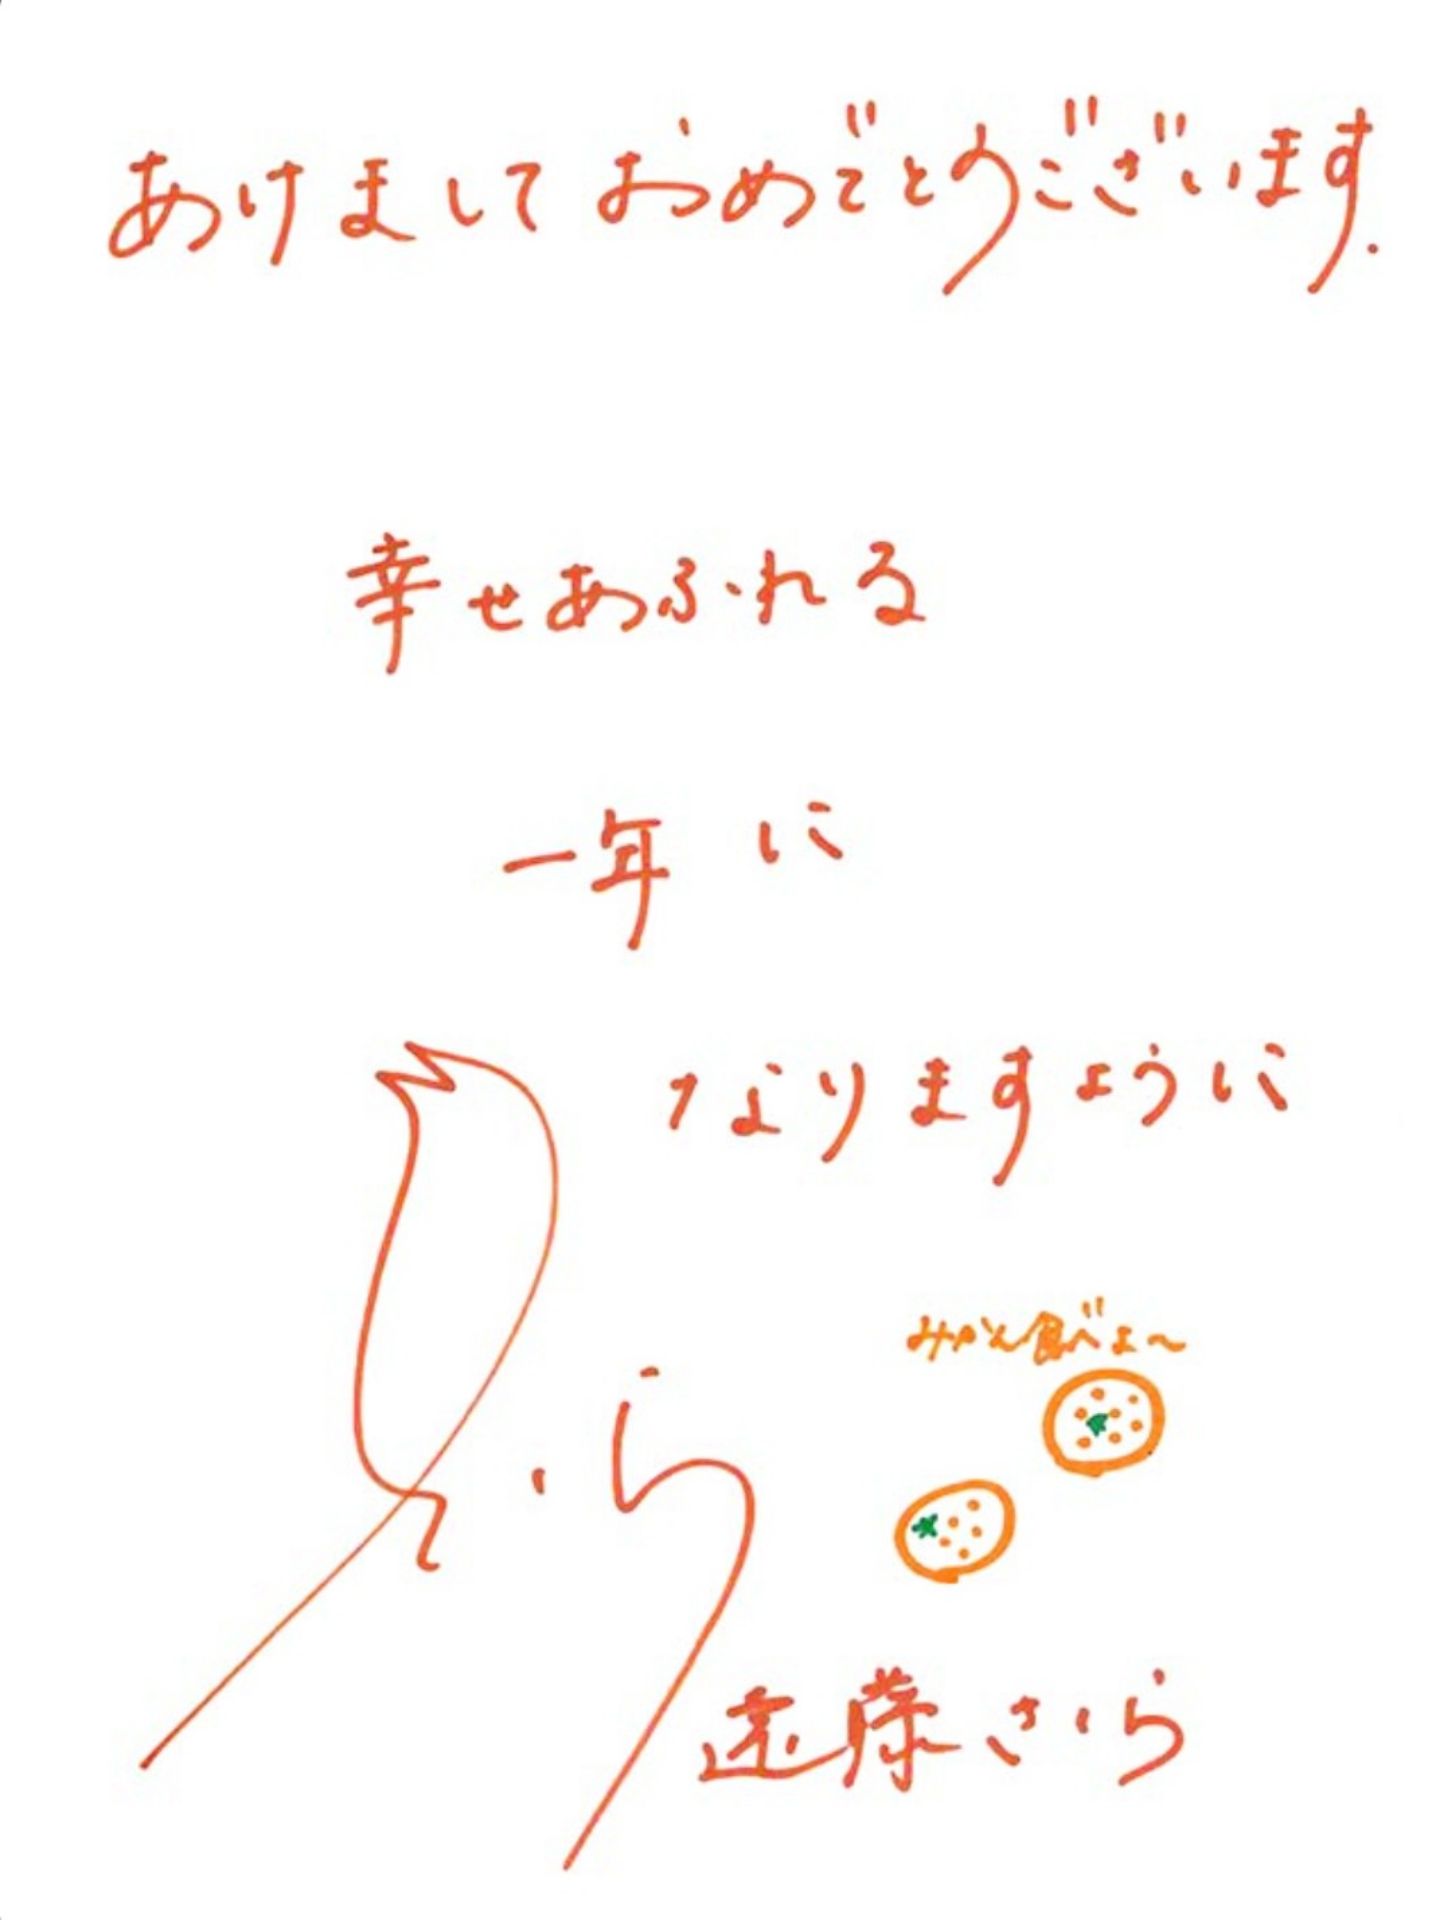 あけましておめでとうございます.
幸せあふれる
一年に
なりますように
みかん食べよ〜
遠藤さくら